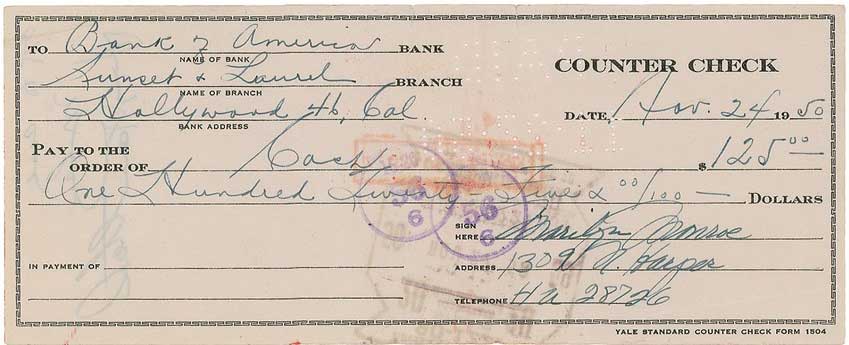 TO Bank of America BANK
NAME OF BANK
COUNTER CHECK
Sunset & Laurel BRANCH
NAME OF BRANCH
Hollywood 46, Cal.
BANK ADDRESS
DATE, Nov. 24 1950
PAY TO THE
ORDER OF Cash $125.00
One Hundred Twenty Five & 00/100 — DOLLARS
56
6
56
6
SIGN
HERE Marilyn Monroe
IN PAYMENT OF
ADDRESS 1309 N Harper
TELEPHONE Hu 28726
YALE STANDARD COUNTER CHECK FORM 1504